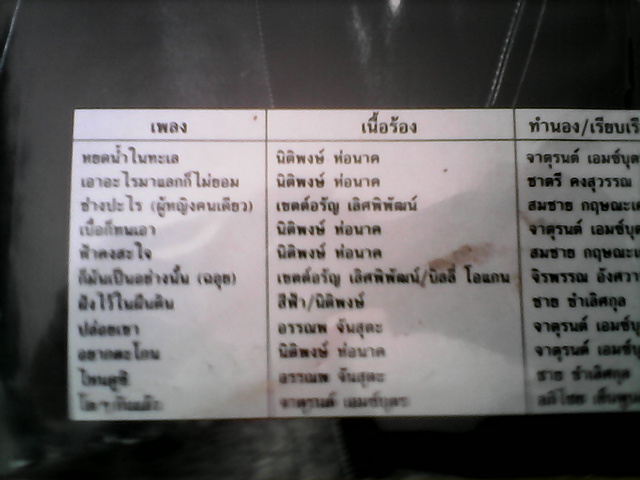 เพลง เนื้อร้อง ทำนอง/เรียบเรี
หยดน้ำในทะเล นิติพงษ์ ห่อนาค จาตุรนต์ เอมซ์บุต
เอาอะไรมาแลกก็ไม่ยอม นิติพงษ์ ห่อนาค ชาตรี คงสุวรรณ
ช่างปะไร (ผู้หญิงคนเดียว) เขตต์อรัญ เลิศพิพัฒน์ สมชาย กฤษณะเ
เบื่อก็ทนเอา นิติพงษ์ ห่อนาค จาตุรนต์ เอมซ์บุ
ฟ้าคงสะใจ นิติพงษ์ ห่อนาค สมชาย กฤษณะเ
ก็มันเป็นอย่างนั้น (ฉลุย) เขตต์อรัญ เลิศพิพัฒน์/บิลลี่ โอแกน จิรพรรณ อังศวา
ฝังไว้ในผืนดิน สีฟ้า/นิติพงษ์ ชาย ชำเลิศกุล
ปล่อยเขา อรรณพ จันสุตะ จาตุรนต์ เอมซ์บุ
อยากตะโกน นิติพงษ์ ห่อนาค จาตุรนต์ เอมซ์บุ
ไหนดูซิ อรรณพ จันสุตะ ชาย ชำเลิศกุล
จาตุรนต์ เอมซ์บุตร